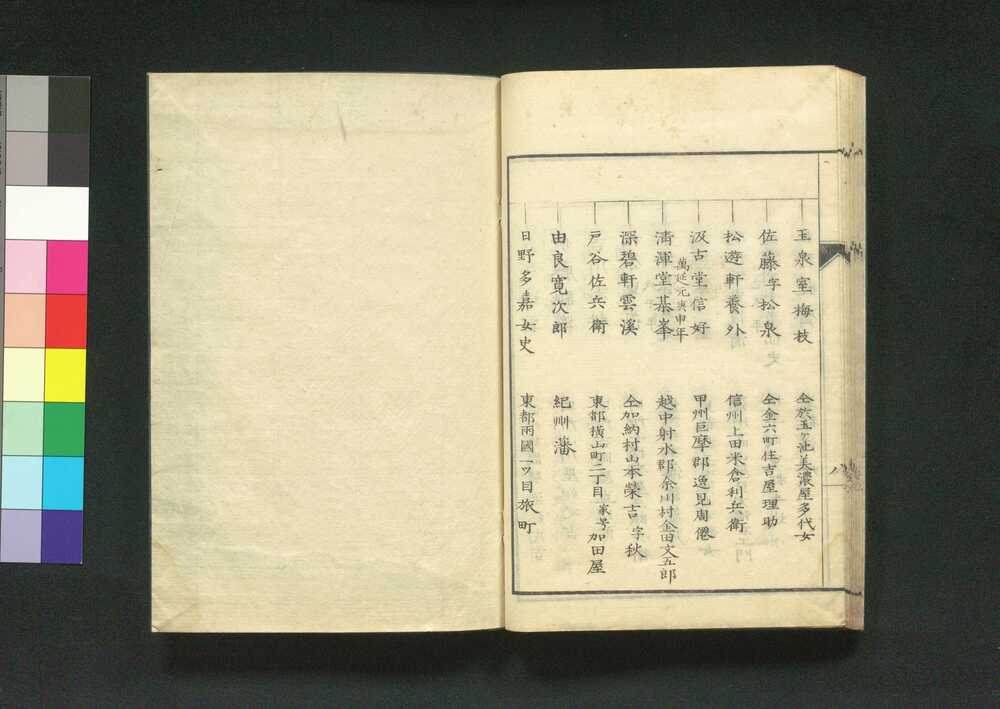 玉泉室梅枝 仝於玉ヶ池美濃屋多代女
佐藤字松泉 仝金六町住吉屋理助
松遊軒養外 信州上田米倉利兵衛
汲古堂信好 甲州巨摩郡逸見周僊
萬延元庚申年
清渾堂基峯 越中射水郡余川村金田文五郎
深碧軒雲溪 仝加納村山本榮吉 字秋
戸谷佐兵衛 東都横山町二丁目 家号 加田屋
由良寛次郎 紀州藩
日野多嘉女史 東都兩國一ッ目旅町
八